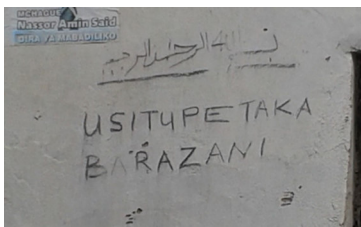 MCHAGUE
Nassor Amin Said
DIRA YA MABADILIKO
بسم الله الرحمن الرحيم
USITUPE TAKA
BARAZANI